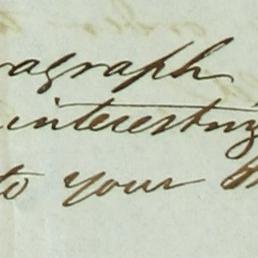 ragraph
interesting
to your